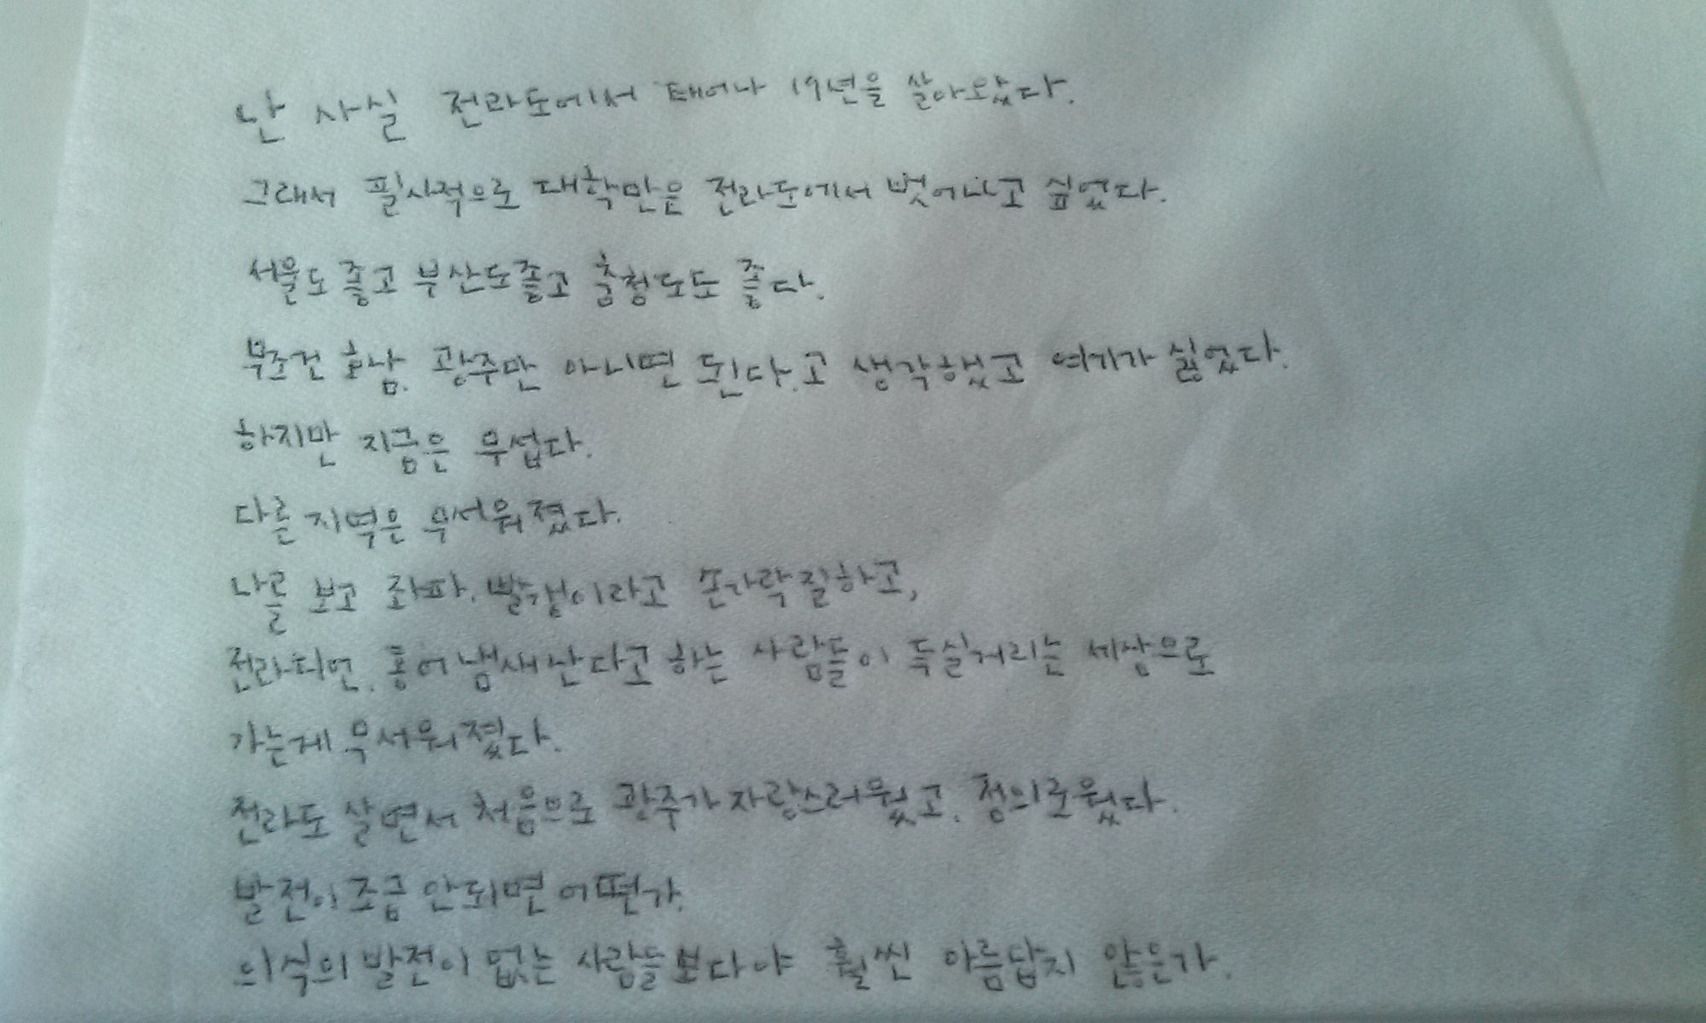 난 사실 전라도에서 태어나 19년을 살아왔다.
그래서 필사적으로 대학만은 전라도에서 벗어나고 싶었다.
서울도 좋고 부산도좋고 충청도도 좋다.
무조건 호남. 광주만 아니면 된다.고 생각했고 여기가 싫었다.
하지만 지금은 무섭다.
다른 지역은 무서워졌다.
나를 보고 좌파. 빨갱이라고 손가락질하고,
전라디언. 홍어냄새난다고 하는 사람들이 득실거리는 세상으로
가는게 무서워졌다.
전라도 살면서 처음으로 광주가 자랑스러웠고. 정의로웠다.
발전이 조금 안되면 어떤가.
의식의 발전이 없는 사람들보다야 훨씬 아름답지 않은가.